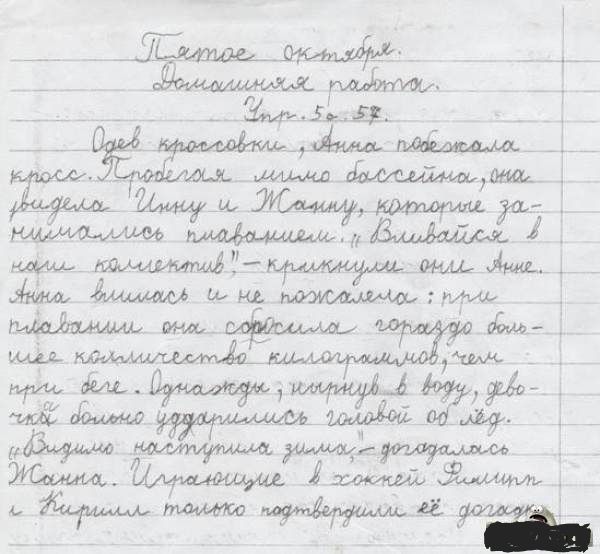 Пятое октября.
Домашняя работа.
Упр. 5 а. 57.
Одев кроссовки, Анна побежала
кросс. Пробегая мимо бассейна, она
увидела Инну и Жанну, которые за-
нимались плаванием. „Вливайся в
наш коллектив", – крикнули они Анне.
Анна влилась и не пожалела: при
плавании она сбросила гораздо боль-
шее количество килограммов, чем
при беге. Однажды, нырнув в воду, дево-
чки больно ударились головой об лёд.
„Видимо наступила зима", – догадалась
Жанна. Играющие в хоккей Филипп
и Кирилл только подтвердили её